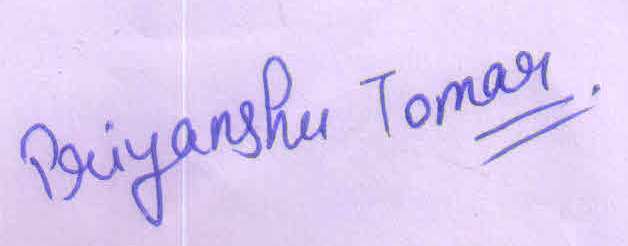 Priyanshu Tomar.